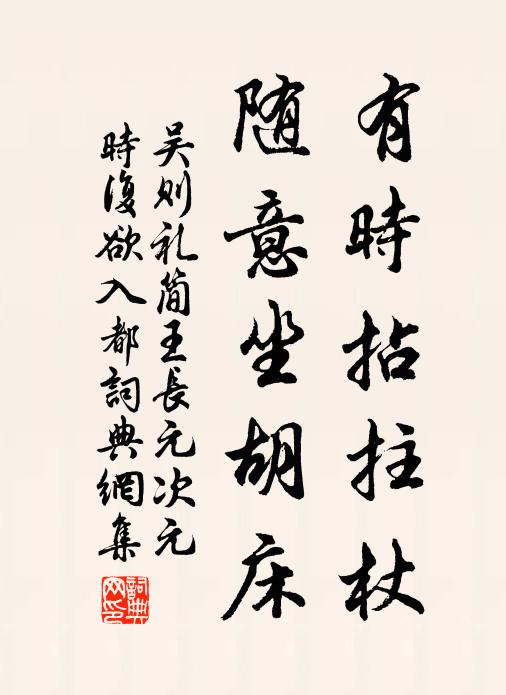 有時拈拄杖
随意坐胡床
吴则礼简王長元次元
時復欲入都詞典網集
詞典网印